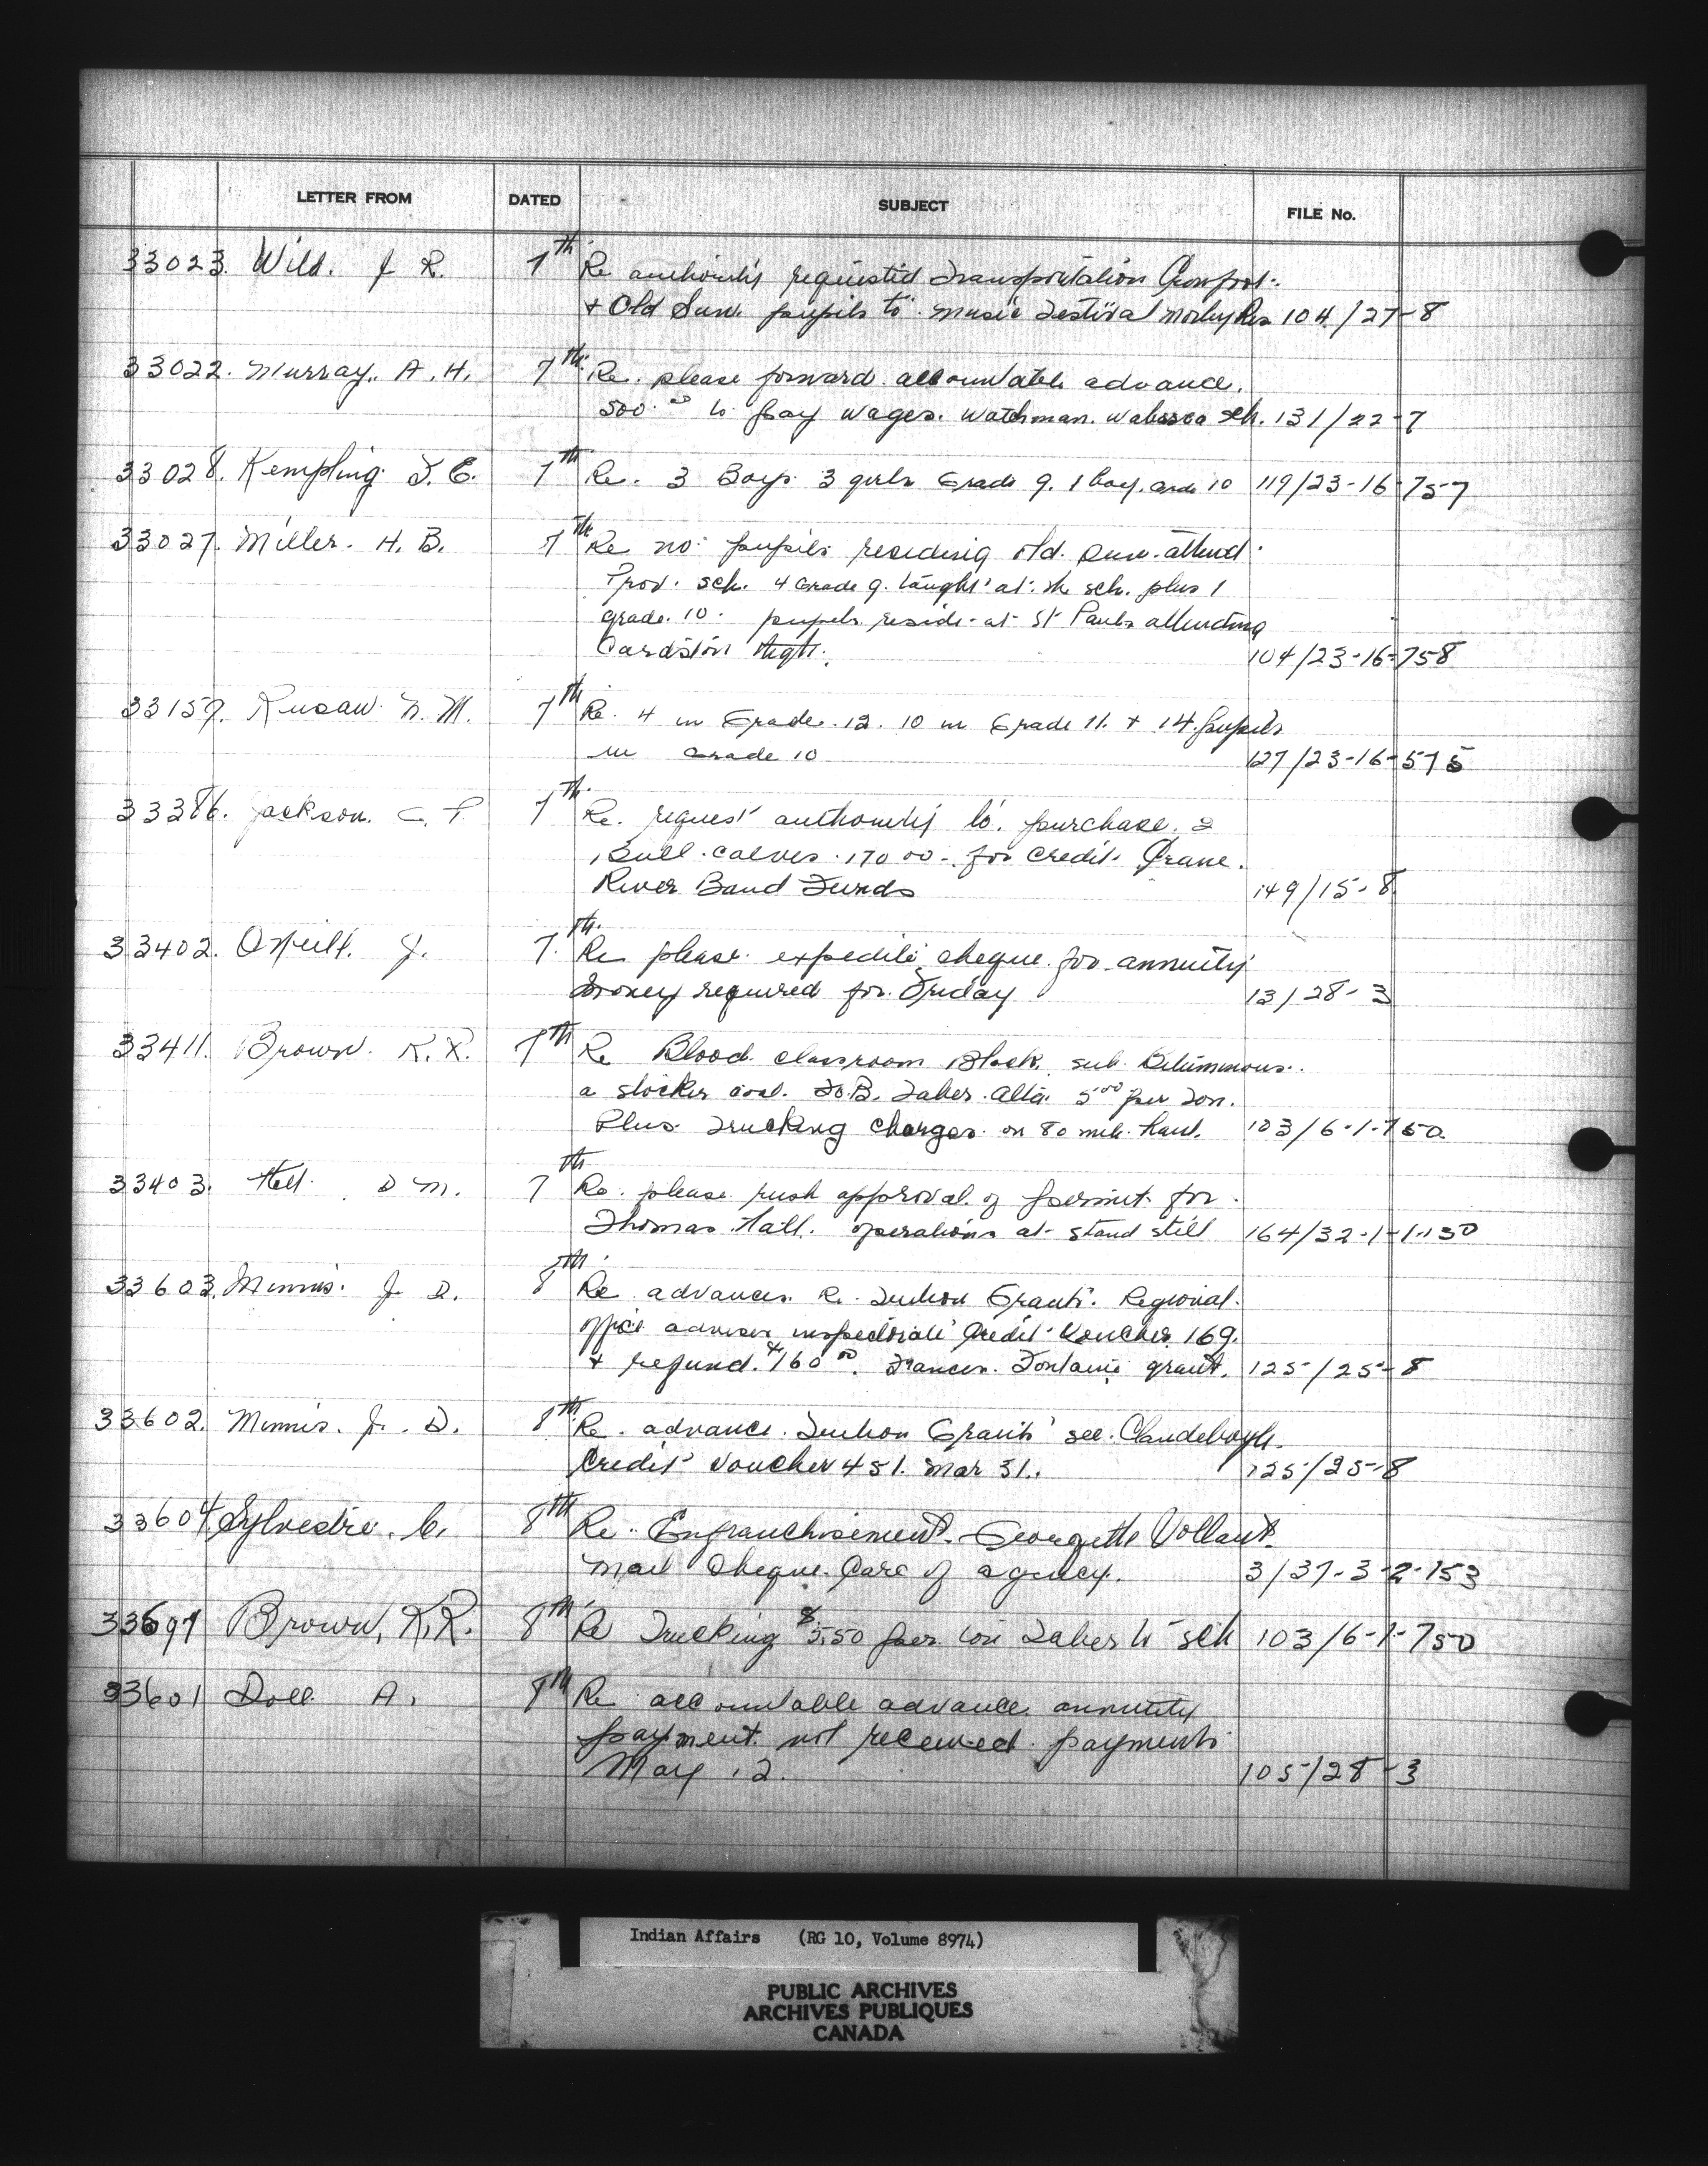 LETTER FROM DATED SUBJECT FILE No.
33023. Wild. J R. 7th Re authority requested Transportation Crowfoot.
+ Old Sun. pupils to music Festival Morley Res 104/27-8
33022. Murray. A. H. 7th Re. please forward accountable advance.
500.00 to pay wages. Watchman. Wabasca sch. 131/22-7
33028. Kempling F. E. 7th Re. 3 Boys. 3 girls Grade 9. 1 boy. Grade 10 119/23-16-757
33027. Miller. H. B. 7th Re no. pupils residing Old. Sun. attend.
Prov. sch. 4 Grade 9. taught at. the sch. plus 1
grade. 10. pupils reside. at St Pauls attending
Cardston High. 104/23-16-758
33157. Rusaw. N. M. 7th Re. 4 in Grade. 12. 10 in Grade 11. + 14. pupils
in Grade 10 127/23-16-575
33386. Jackson. C. P. 7th Re. request authority to. purchase. 2
Bull. calves. 170 00 - for credit. Crane.
River Band Funds 149/15-8
33402. O'Neill. J. 7th Re please. expedite cheque. for annuity
money required for. Friday 13/28-3
33411. Brown. K. R. 7th Re Blood classroom Block. sub Bituminous.
a stocker coal. F.O.B. Taber. Alta. 5 00 per Ton.
Plus. Trucking charges. on 80 mile. haul. 103/6-1-750
33403. D M. 7th Re. please rush approval. of permit. for.
Thomas. Hall. operations at stand still 164/32-1-1-130
33603. Minnis. J. D. 8th Re advances. Re. Tuition Grants. Regional.
office advises inspectorate Credit Voucher 169.
+ refund. $160 00. Frances. Fontaine grant. 125/25-8
33602. Minnis. J. D. 8th Re. advance. Tuition Grants see. Clandeboye.
Credit Voucher 451. Mar 31. 125/25-8
33604. Sylvestre. C. 8th Re. Enfranchisement. Georgette Vollant.
mail Cheque. Care of agency. 3/37-3-2-153
33697 Brown, K. R. 8th Re Trucking 50 per ton Taber to sch 103/6-1-750
33601 Doll A. 8th Re accountable advance. annuity
payment. not received. payments
May 12. 105/28-3
Indian Affairs (RG 10, Volume 8974)
PUBLIC ARCHIVES
ARCHIVES PUBLIQUES
CANADA